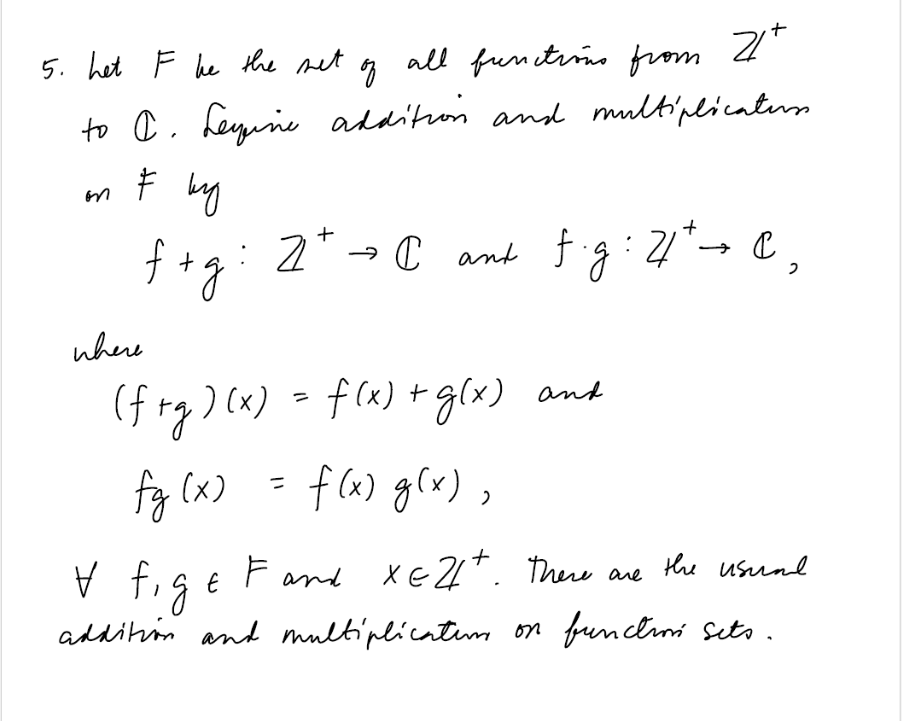 5. Let F be the set of all functions from ℤ⁺
to ℂ. Define addition and multiplication
on F by
f + g : ℤ⁺ → ℂ and f·g : ℤ⁺ → ℂ,
where
(f+g)(x) = f(x) + g(x) and
fg(x) = f(x) g(x),
∀ f,g ∈ F and x ∈ ℤ⁺. There are the usual
addition and multiplication on function sets.